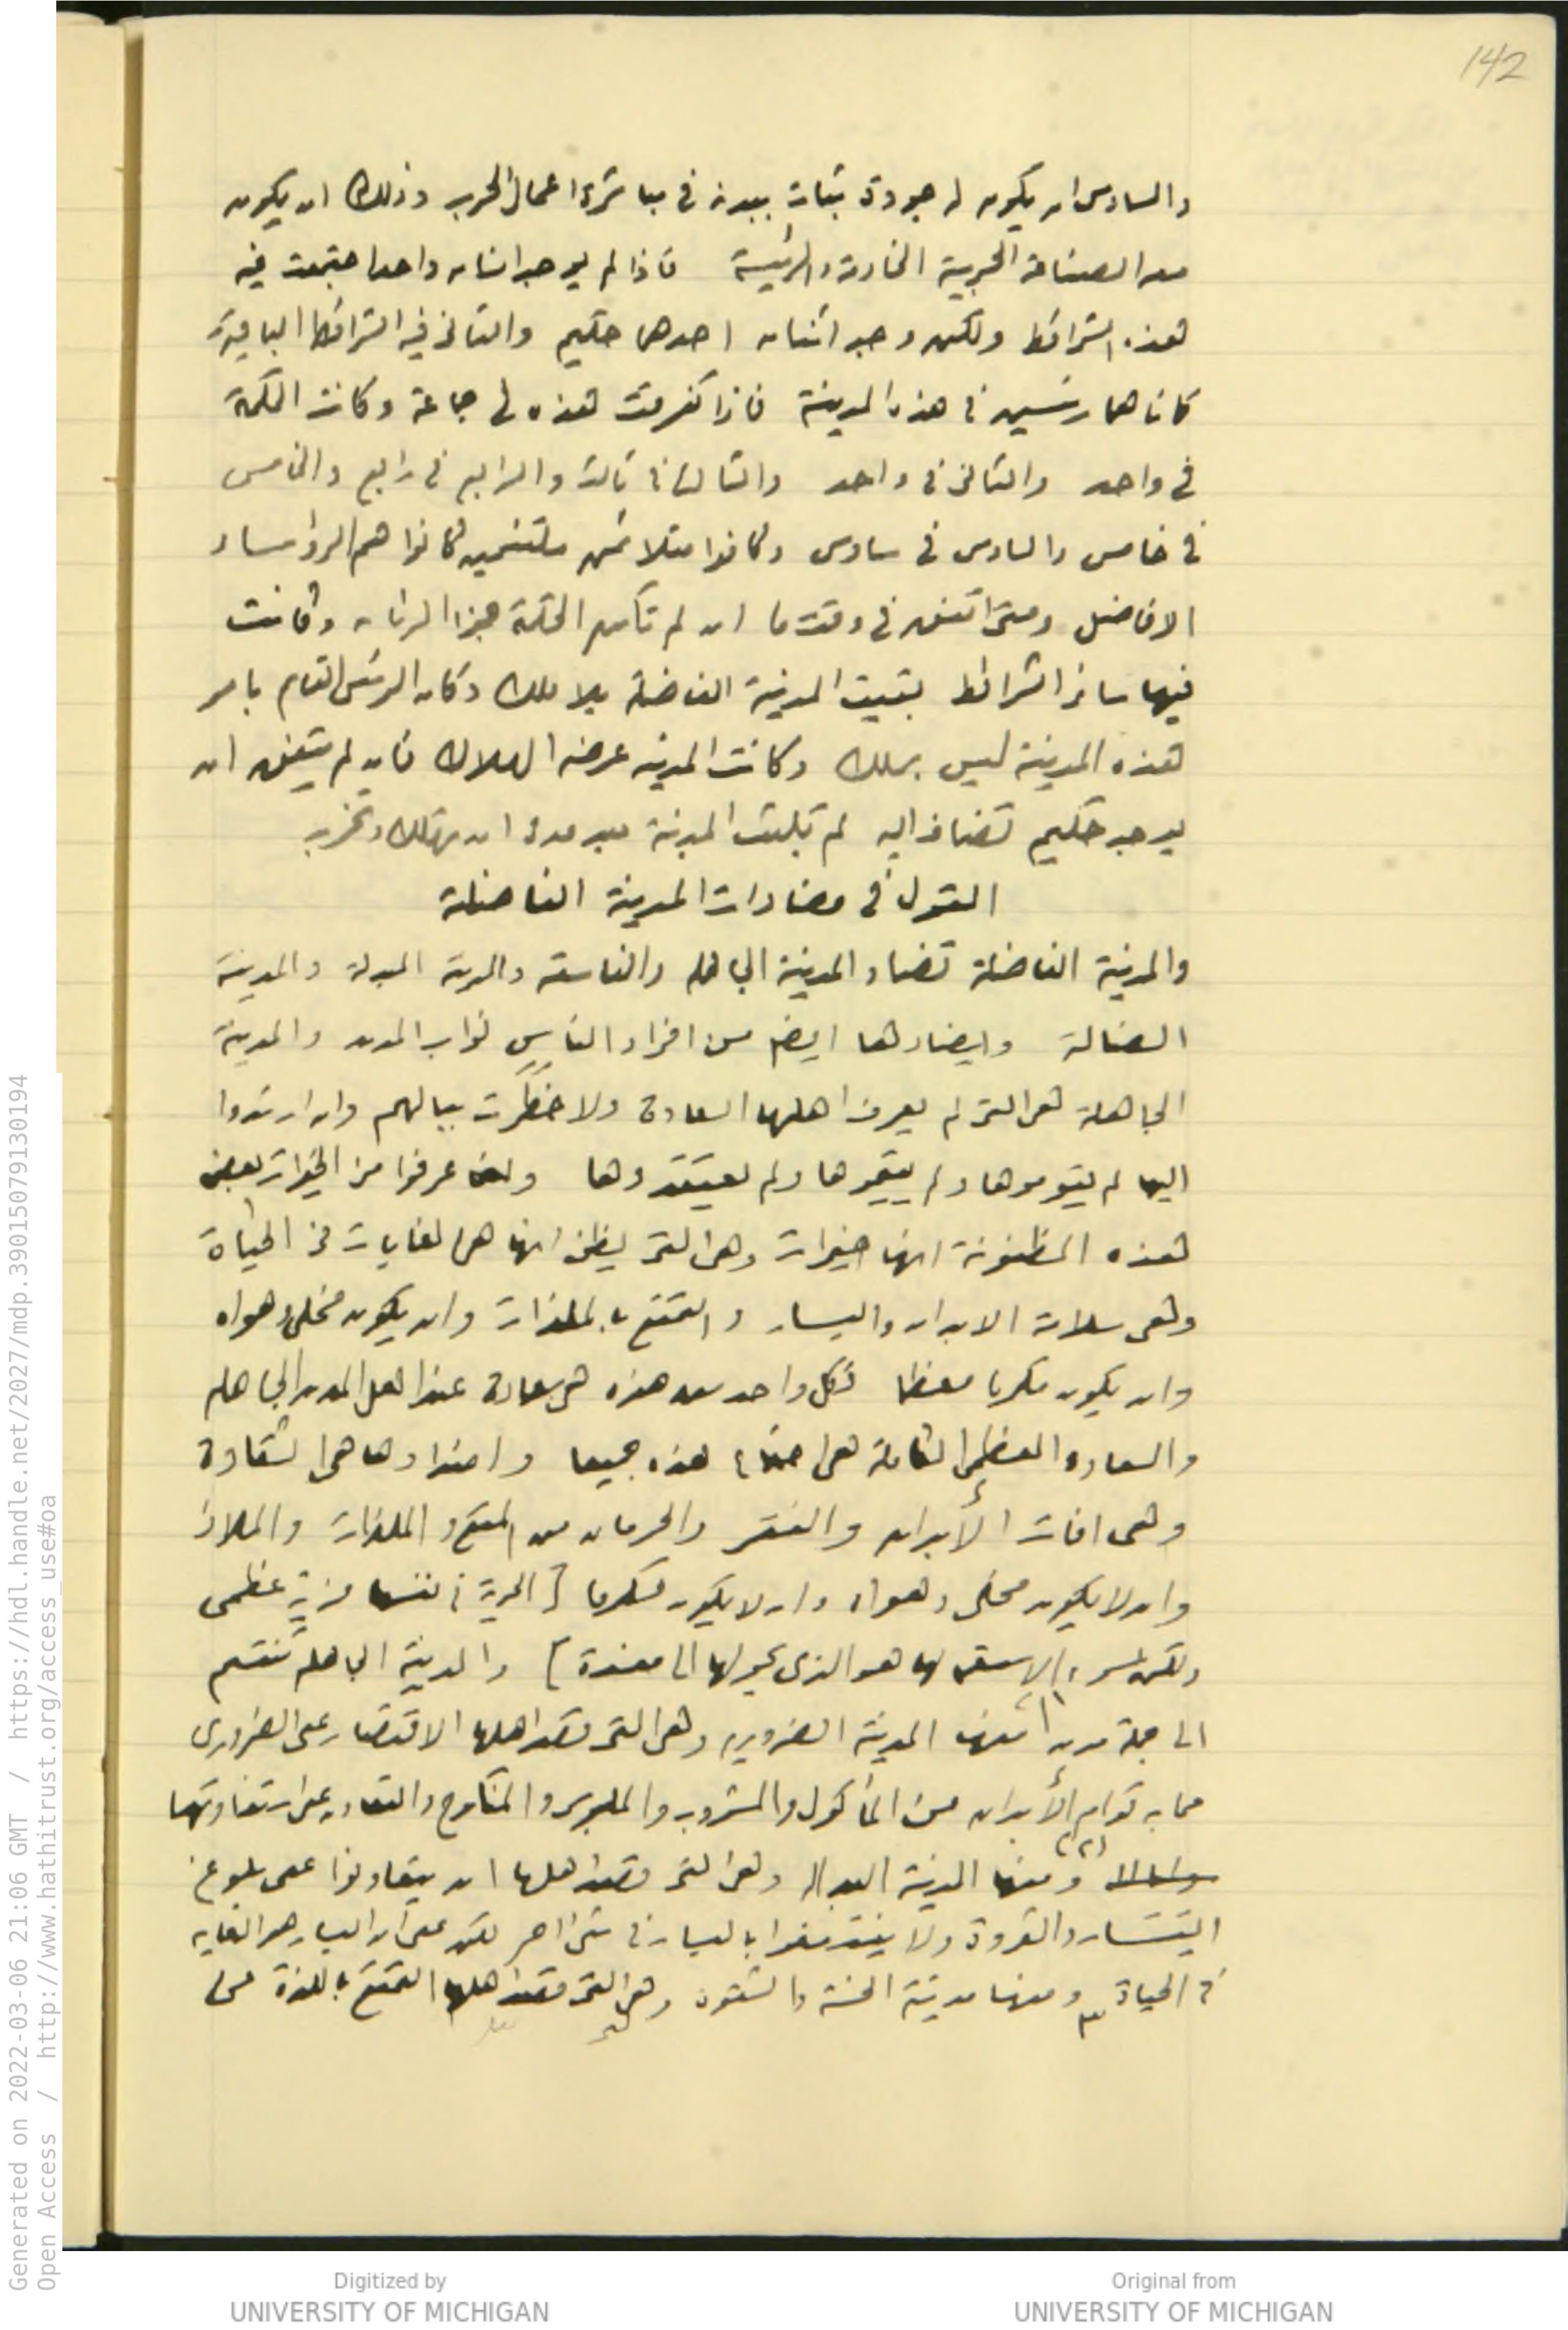 142
والسادس ان يكون له جودة بثبات ببدنه في مباشرة اعمال الحرب وذلك ان يكون
معه الصناعة الحربية الخادمة والرئيسة فاذا لم يوجد انسان واحد اجتمعت فيه
هذه الشرائط ولكن وجد اثنان احدهما حكيم والثاني فيه الشرائط الباقية
كانا هما رئيسين في هذه المدينة فاذا تفرقت هذه في جماعة وكانت الحكمة
في واحد والثاني في واحد والثالث في ثالث والرابع في رابع والخامس
في خامس والسادس في سادس وكانوا متلائمين كانوا هم الرؤساء
الافاضل ومتى اتفق في وقت ما ان لم تكن الحكمة جزء الرئاسة وكانت
فيها سائر الشرائط بقيت المدينة الفاضلة بلا ملك وكان الرئيس القائم بامر
هذه المدينة ليس بملك وكانت المدينة عرضة الهلاك فان لم يتفق ان
يوجد حكيم تضاف اليه لم تلبث المدينة بعد مدة ان تهلك وتخرب
القول في مضادات المدينة الفاضلة
والمدينة الفاضلة تضاد المدينة الجاهلة والفاسقة والمدينة المبدلة والمدينة
الضالة ويضادها ايضا من افراد الناس نواب المدن والمدينة
الجاهلة هي التي لم يعرف اهلها السعادة ولا خطرت ببالهم وان ارشدوا
اليها لم يقوموها ولم يقيموها ولم يعتقدوها وانما عرفوا من الخيرات بعض
هذه المظنونة انها خيرات وهي التي يظن انها هي الغايات في الحياة
وهي سلامة الابدان واليسار والتمتع بالملذات وان يكون مخلى وهواه
وان يكون مكرما معظما فكل واحد من هذه هي سعادة عند اهل المدن الجاهلة
والسعادة العظمى الكاملة هي اجتماع هذه جميعا واضدادها هي الشقاوة
وهي افات الأبدان والفقر والحرمان من التمتع والملذات والملاذ
وان لا يكون مخلى وهواه وان لا يكون مكرما [الحرية في نفسها مزية عظمى
ولكن سوء الاستعمال لها هو الذي يحولها الى مفسدة] والمدينة الجاهلة تنقسم
الى جملة مدن (١) منها المدينة الضرورية وهي التي قصد اهلها الاقتصار على الضروري
مما به قوام الأبدان من المأكول والمشروب والملبوس والمنكوح والتعاون على استفادتها
(٢) ومنها المدينة البدالة وهي التي قصد اهلها ان يتعاونوا على بلوغ
اليسار والثروة ولا ينتفعوا باليسار في شيء اخر لكن على ان اليسار هو الغاية
في الحياة ٣ ومنها مدينة الخسة والشقوة وهي التي قصد اهلها التمتع باللذة من
Generated on 2022-03-06 21:06 GMT / https://hdl.handle.net/2027/mdp.39015079130194
Open Access / http://www.hathitrust.org/access_use#oa
Digitized by
UNIVERSITY OF MICHIGAN
Original from
UNIVERSITY OF MICHIGAN